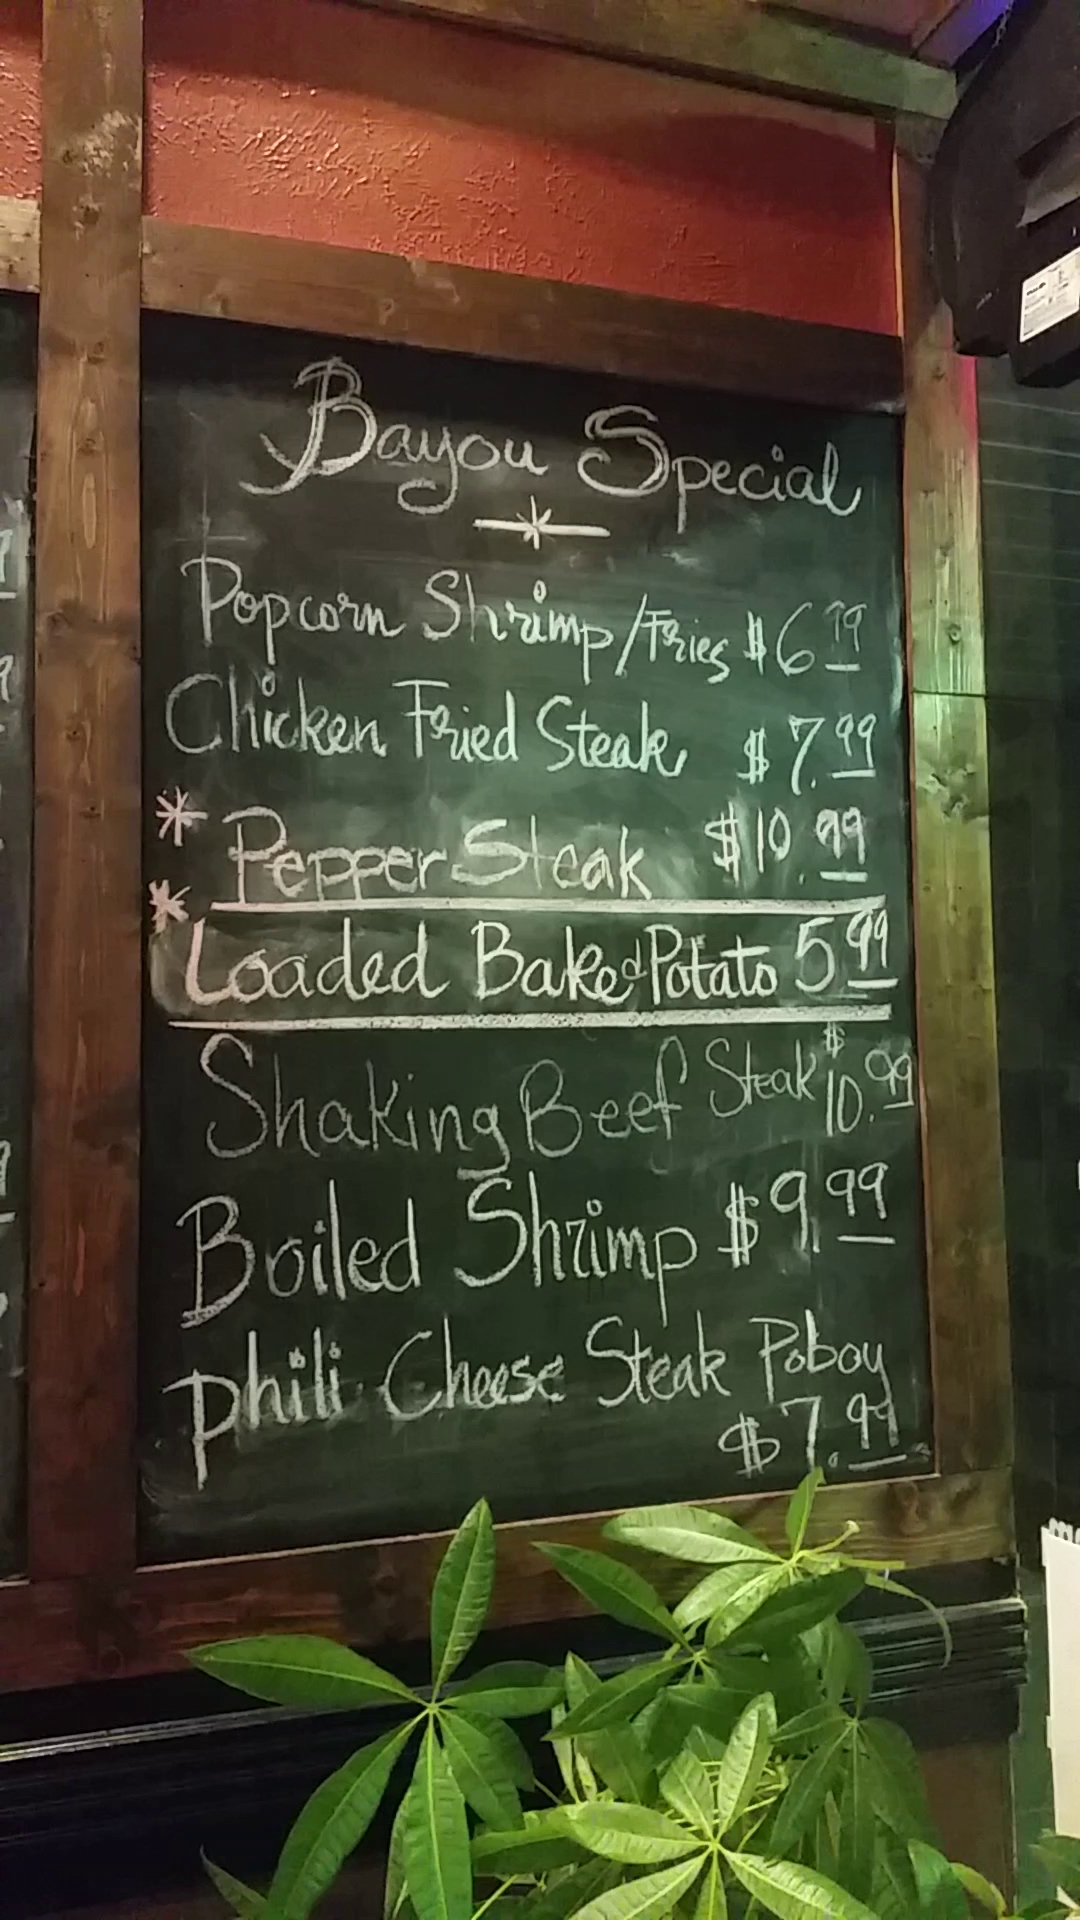 Bayou Special
Popcorn Shrimp/Fries $6.99
Chicken Fried Steak $7.99
* Pepper Steak $10.99
* Loaded Baked Potato 5.99
Shaking Beef Steak $10.99
Boiled Shrimp $9.99
Phili Cheese Steak Poboy
$7.99